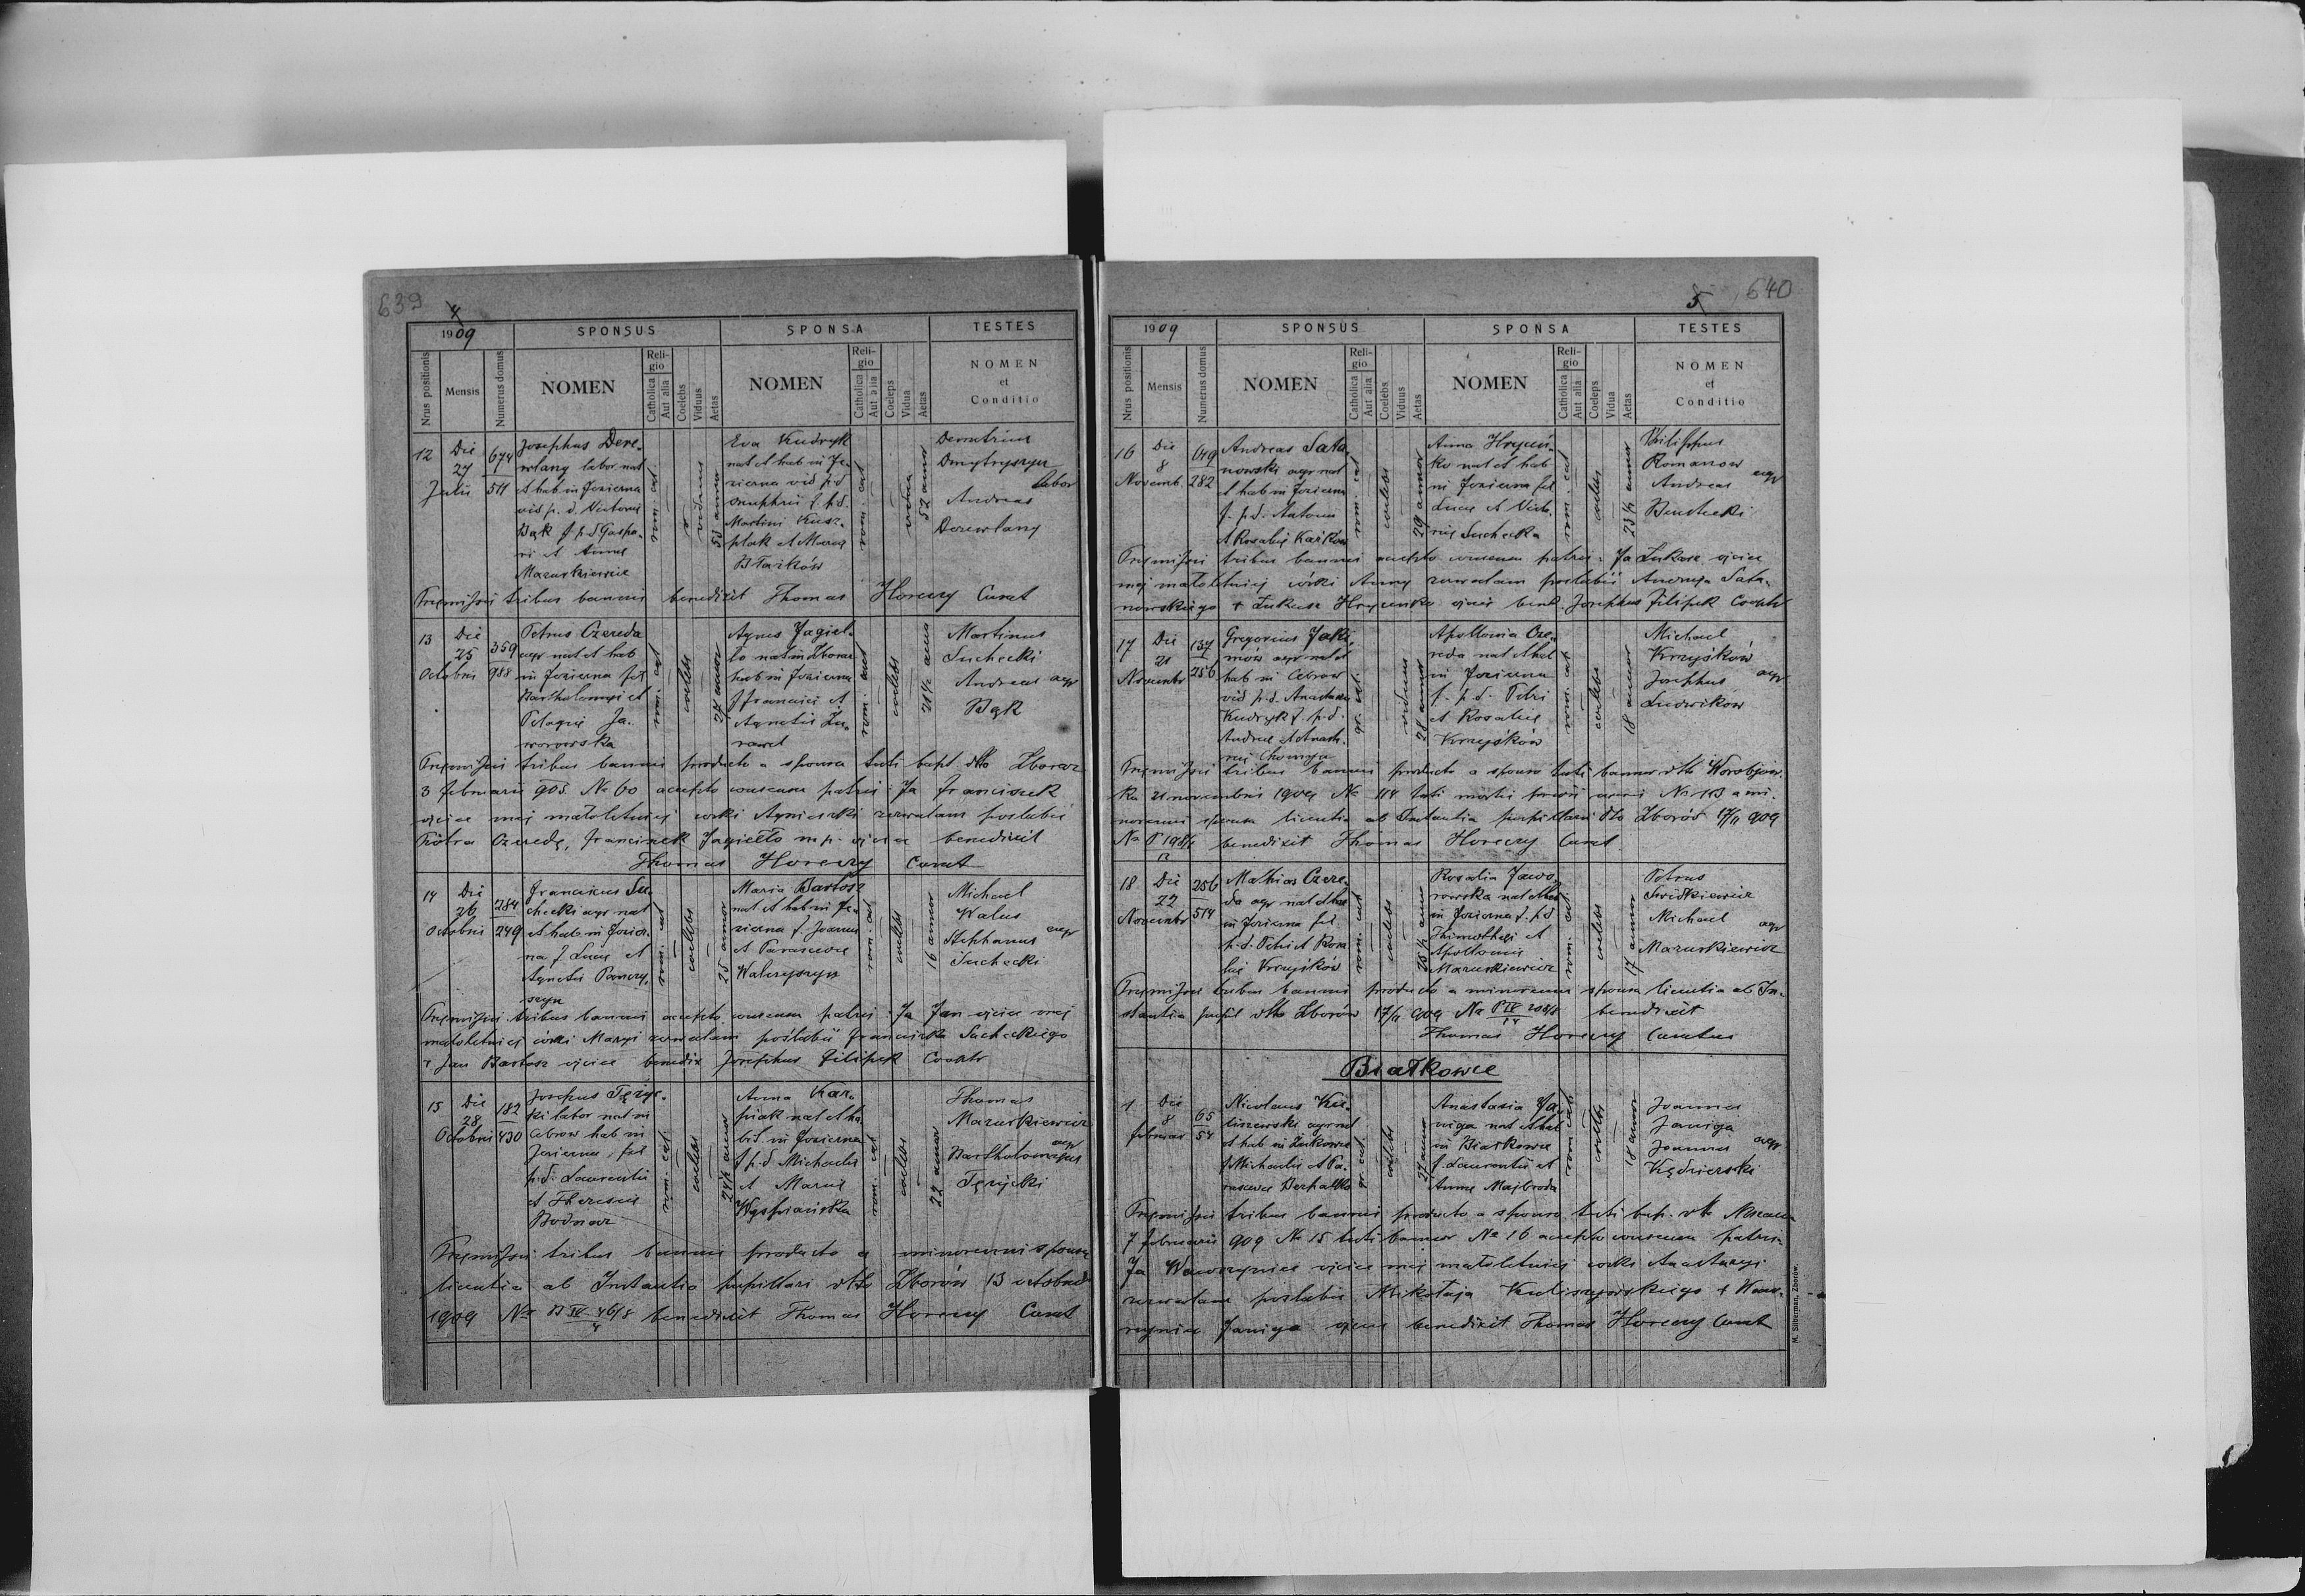 639
4
1909
SPONSUS
SPONSA
TESTES
Nrus positionis
Mensis
Numerus domus
NOMEN
Religio
Catholica
Aut alia
Coelebs
Viduus
Aetas
NOMEN
Religio
Catholica
Aut alia
Coeleps
Vidua
Aetas
NOMEN
et
Conditio
12
Die
27
Julii
674
511
Josephus Dere-
wlany labor nat
et hab in Jezierna
vid p. d. Victoriae
Bąk f p d Gaspa-
ri et Annae
Mazurkiewicz
rom. cat
viduus
53 annor
Eva Kudryk
nat et hab in Je-
zierna vid p d
Onuphrii f. p d.
Martini Kusz-
plak et Mariae
Błaików
rom. cat
vidua
52 annor
Demetrius
Dmytryszyn
labor
Andreas
Derewlany
Praemissis tribus bannis benedixit Thomas Horeczy Curat
13
Die
25
Octobris
359
988
Petrus Czereda
agr nat et hab
in Jezierna fil
Bartholomaei et
Pelagiae Ja-
worowska
rom. cat
coelebs
27 annor
Agnes Jagieł-
ło nat in Zboraz
hab in Jezierna
f Francisci et
Agnetis Żu-
rawel
rom. cat
coelebs
21½ anno
Martinus
Suchecki
Andreas agr
Bąk
Praemissis tribus bannis producto a sponsa testi bapt. dtto Zboraz
3 februarii 908. No 60 accepto consensu patris: Ja Franciszek
ojciec mej małoletniej córki Agnieszki zezwalam poslubić
Piotra Czeredę, Franciszek Jagiełło mp. ojciec benedixit
Thomas Horeczy Curat
14
Die
26
Octobris
284
249
Franciscus Su-
checki agr nat
et hab in Jezier-
na f Lucae et
Agnetis Panczy-
szyn
rom. cat
coelebs
25 annor
Maria Bartosz
nat et hab in Je-
zierna f. Joannis
et Parasceve
Walczyszyn
rom. cat
coelebs
16 annor
Michael
Walus
Stephanus agr
Suchecki
Praemissis tribus bannis accepto consensu patris: Ja Jan ojciec mej
małoletniej córki Maryi zezwalam poślubić Franciszka Sucheckiego
+ Jan Bartosz ojciec benedix Josephus Filipek Cooptr
15
Die
28
Octobris
182
430
Josephus Tęzyc-
ki labor nat in
Cebrow hab in
Jezierna, fil
p. d. Laurentii
et Theresiae
Bodnar
rom. cat
coelebs
24½ annor
Anna Kar-
piak nat et ha-
bit. in Jezierna
f p. d Michaelis
et Mariae
Wyspiańska
rom. cat
coelebs
22 annor
Thomas
Mazurkiewicz
agr
Bartholomaeus
Tęzycki
Praemissis tribus bannis producto a minorenni sponsa
licentia ab Instantia pupillari dtto Zborów 13 octobris
1909 No P IV 46/8 benedixit Thomas Horeczy Curat
4
640
5
1909
SPONSUS
SPONSA
TESTES
Nrus positionis
Mensis
Numerus domus
NOMEN
Religio
Catholica
Aut alia
Coelebs
Viduus
Aetas
NOMEN
Religio
Catholica
Aut alia
Coeleps
Vidua
Aetas
NOMEN
et
Conditio
16
Die
8
Novemb.
649
282
Andreas Sata-
nowski agr nat
et hab in Jezierna
f. p. d. Antonii
et Rosaliae Kaików
rom. cat
coelebs
29 annor
Anna Hrycuń-
ko nat et hab
in Jezierna fil
Lucae et Victo-
riae Suchecka
rom. cat
coelebs
23½ annor
Philippus
Romanow
agr
Andreas
Bendecki
Praemissis tribus bannis accepto consensu patris: Ja Łukasz ojciec
mej małoletniej córki Anny zezwalam poslubić Andreja Sata-
nowskiego + Łukasz Hrycunko ojciec bened. Josephus Filipek Cooptr
17
Die
21
Novembr
137
256
Gregorius Jaki-
mów agr nat et
hab in Cebrow
vid p. d. Anastasiae
Kudryk f. p. d.
Andreae et Anast-
riae Chomya
gr. cat.
viduus
28 annor
Apollonia Cze-
reda nat et hab
in Jezierna
f. p. d. Petri
et Rosaliae
Krzyśków
rom. cat
coelebs
18 annor
Michael
Krzyśków
Josephus agr
Ludwików
Praemissis tribus bannis producto a sponso testi bannor dtto Worobijow-
ka 21 novembris 1909 No 114 testi mortis No 153 a mi-
norenni sponsa licentia ab Instantia pupillari dto Zborów 17/11 909
No P 198/4 benedixit Thomas Horeczy Curat
18
Die
22
Novembr
256
514
Mathias Czere-
da agr nat et hab
in Jezierna fil
p. d. Petri et Rosa
liae Krzyśków
rom. cat
coelebs
25½ anno
Rosalia Jawo-
rowska nat et hab
in Jezierna f. p d
Thimothei et
Apolloniae
Mazurkiewicz
rom. cat
coelebs
17 annor
Petrus
Swidkiewicz
Michael agr
Mazurkiewicz
Praemissis tribus bannis producto a minorenni sponsa licentia ab In-
stantia pupil dtto Zborów 17/11 909 No P IV 208/8 benedixit
14
Thomas Horeczy Curatus
Białkowce
1
Die
8
februar
65
54
Nicolaus Ku-
liszewski agr nat
et hab in Żukowce
f Michaelis et Pa-
rasceve Berhatko
gr. cat.
coelebs
27 annor
Anastasia Ja-
niga nat et hab
in Białkowce
f. Laurentii et
Annae Majbroda
rom cat
coelebs
18 annor
Joannes
Janiga
Joannes agr
Kędzierski
Praemissis tribus bannis producto a sponso testi bap. dtto
7 februarii 909 No 15 testi bannor No 16 accepto consensu patris:
Ja Wawrzyniec ojciec mej małoletniej córki Anastazyi
zezwalam poslubić Mikołaja Kuliszewskiego + Waw-
rzyniec Janiga ojciec benedixit Thomas Horeczy Curat
M. Silberman, Zborów.